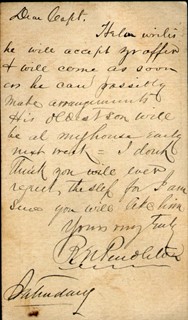 Dear Capt.
Helm writes
he will accept yr offer
& will come as soon
as he can possibly
make arrangements
His oldest son will
be at my house early
next week = I don't
think you will ever
regret the step for I am
sure you will like him
Yours very truly
Pendleton
Saturday